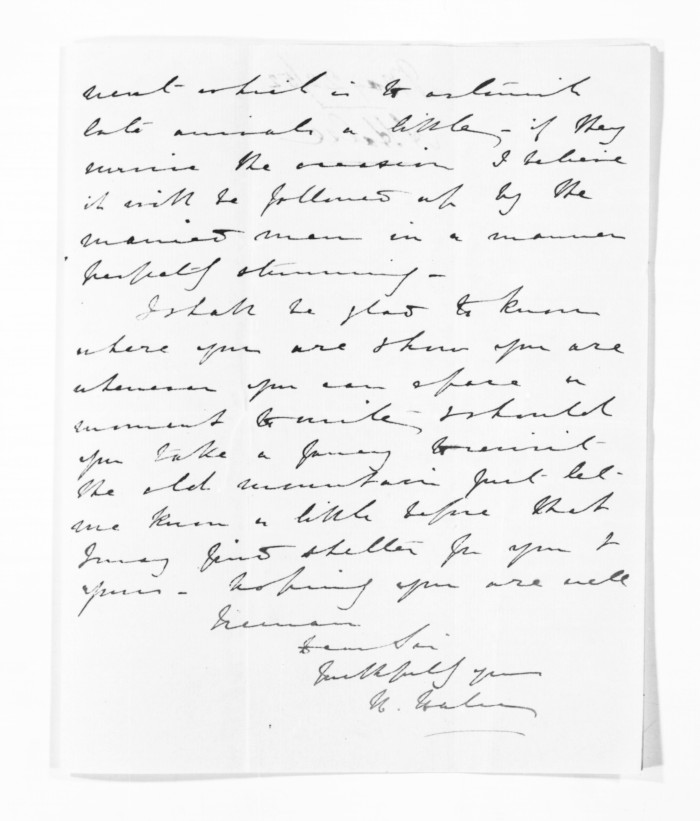 ment which is to astonish
late arrivals a little - if they
survive the occasion I believe
it will be followed up by the
married men in a manner
perfectly stunning -
I shall be glad to know
where you are & how you are
whenever you can spare a
moment to write, & should
you take a fancy to revisit
the old mountain just let
me know a little before that
I may find shelter for you &
yours - hoping you are well
I remain
Dear Sir
Faithfully yours